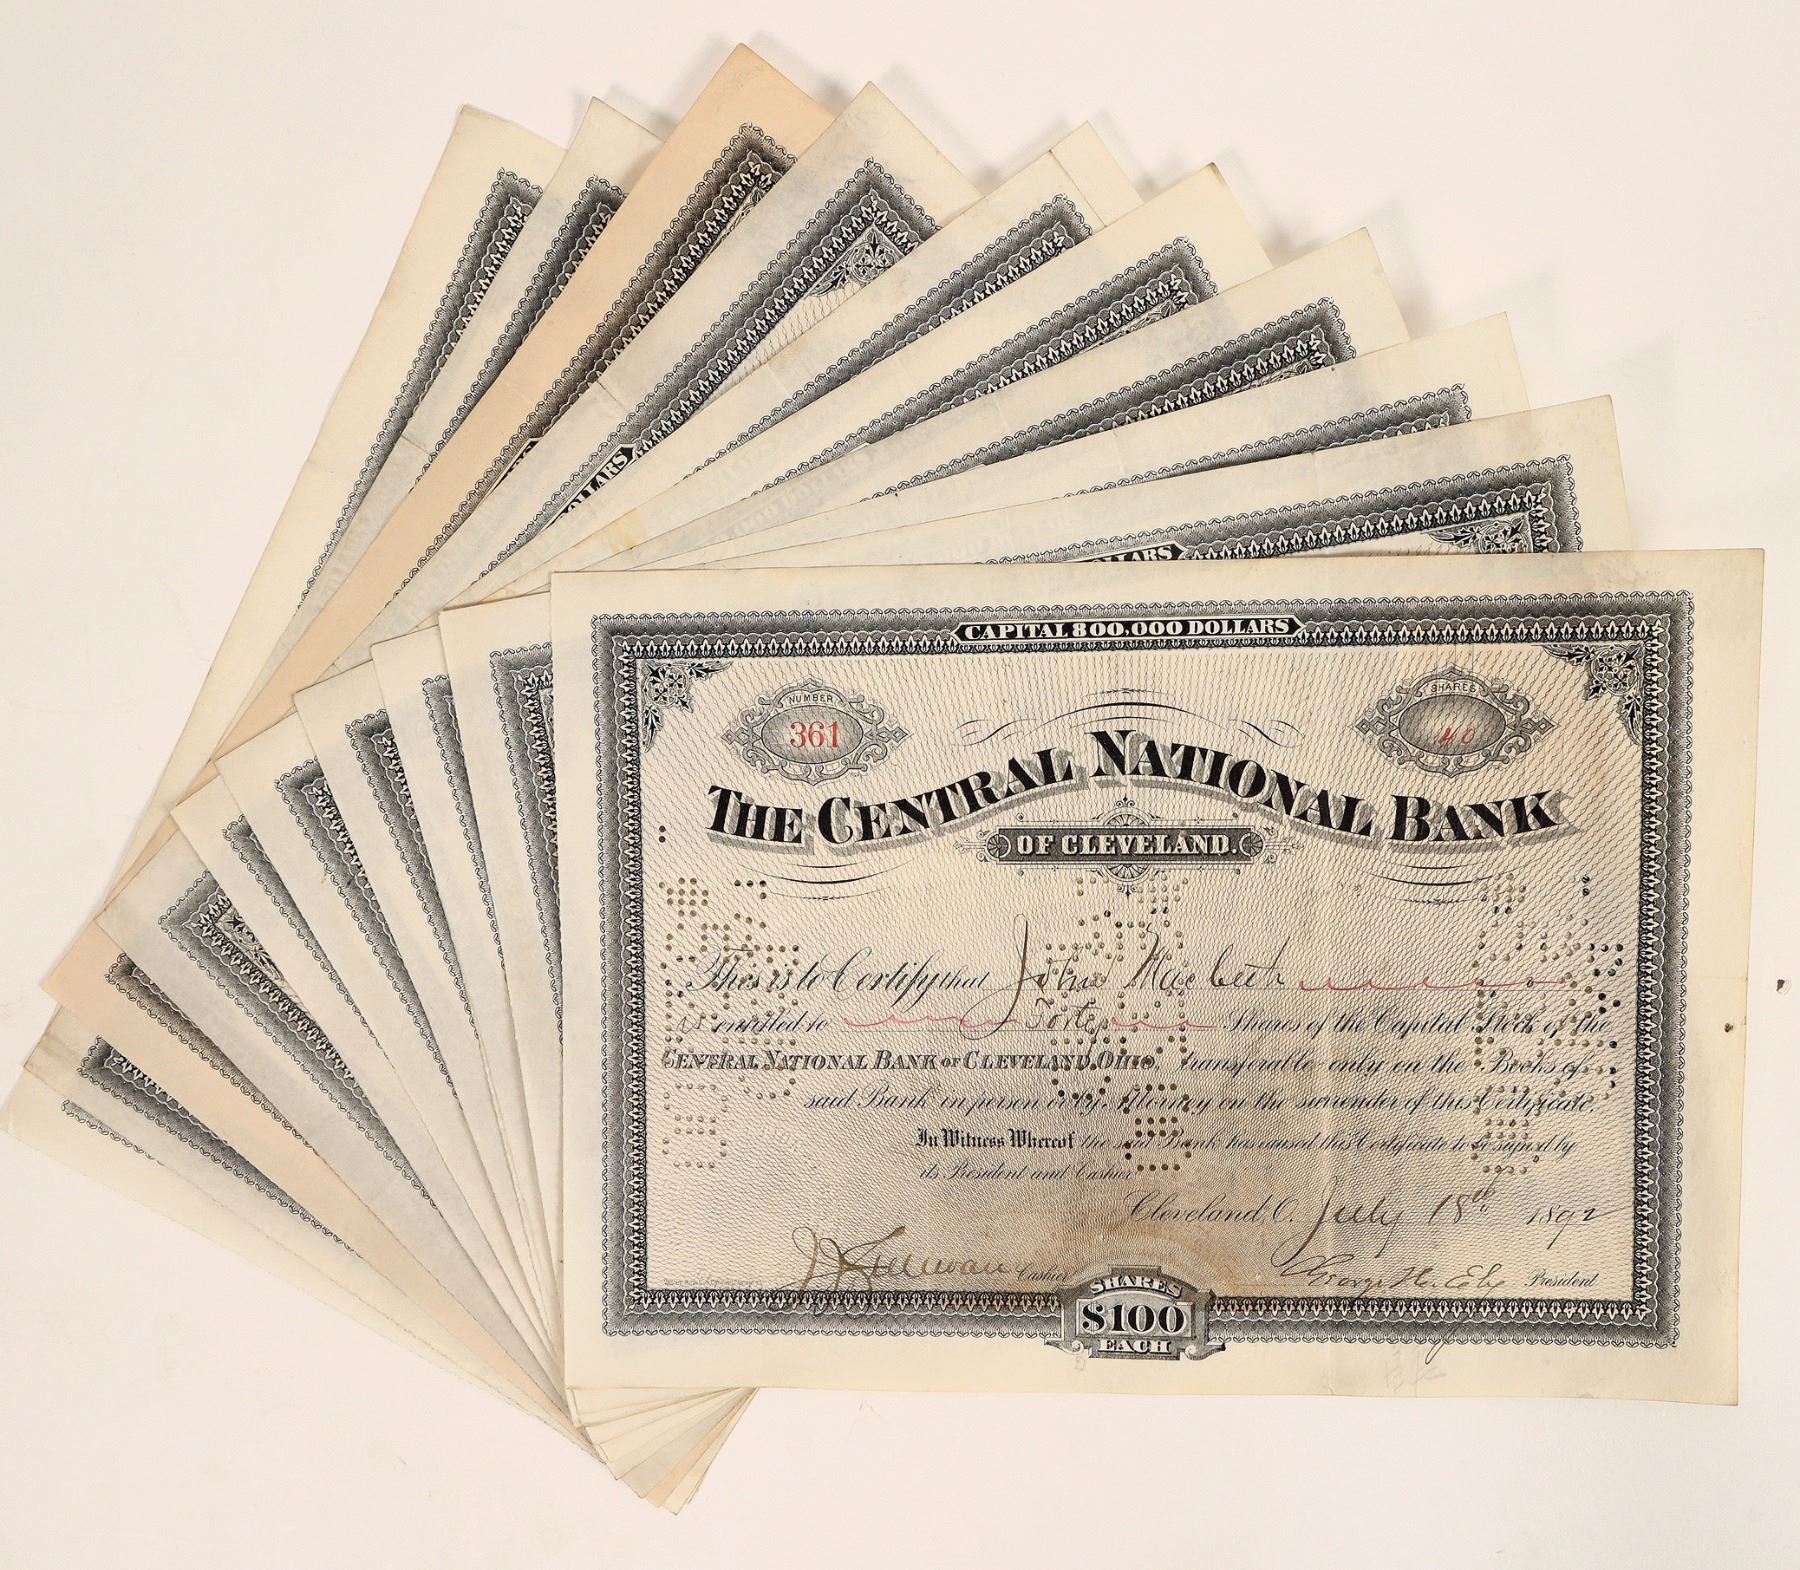 DOLLARS
LLARS
CAPITAL 800,000 DOLLARS
NUMBER
361
SHARES
40
THE CENTRAL NATIONAL BANK
OF CLEVELAND.
This is to Certify that John Macbeth
is entitled to Forty Shares of the Capital Stock of the
CENTRAL NATIONAL BANK OF CLEVELAND, OHIO, transferable only on the Books of
said Bank in person or by Attorney on the surrender of this Certificate.
In Witness Whereof the said Bank has caused this Certificate to be signed by
its President and Cashier
Cleveland, O. July 18th 1892
Cashier
George H. Ely President
SHARES
$100
EACH